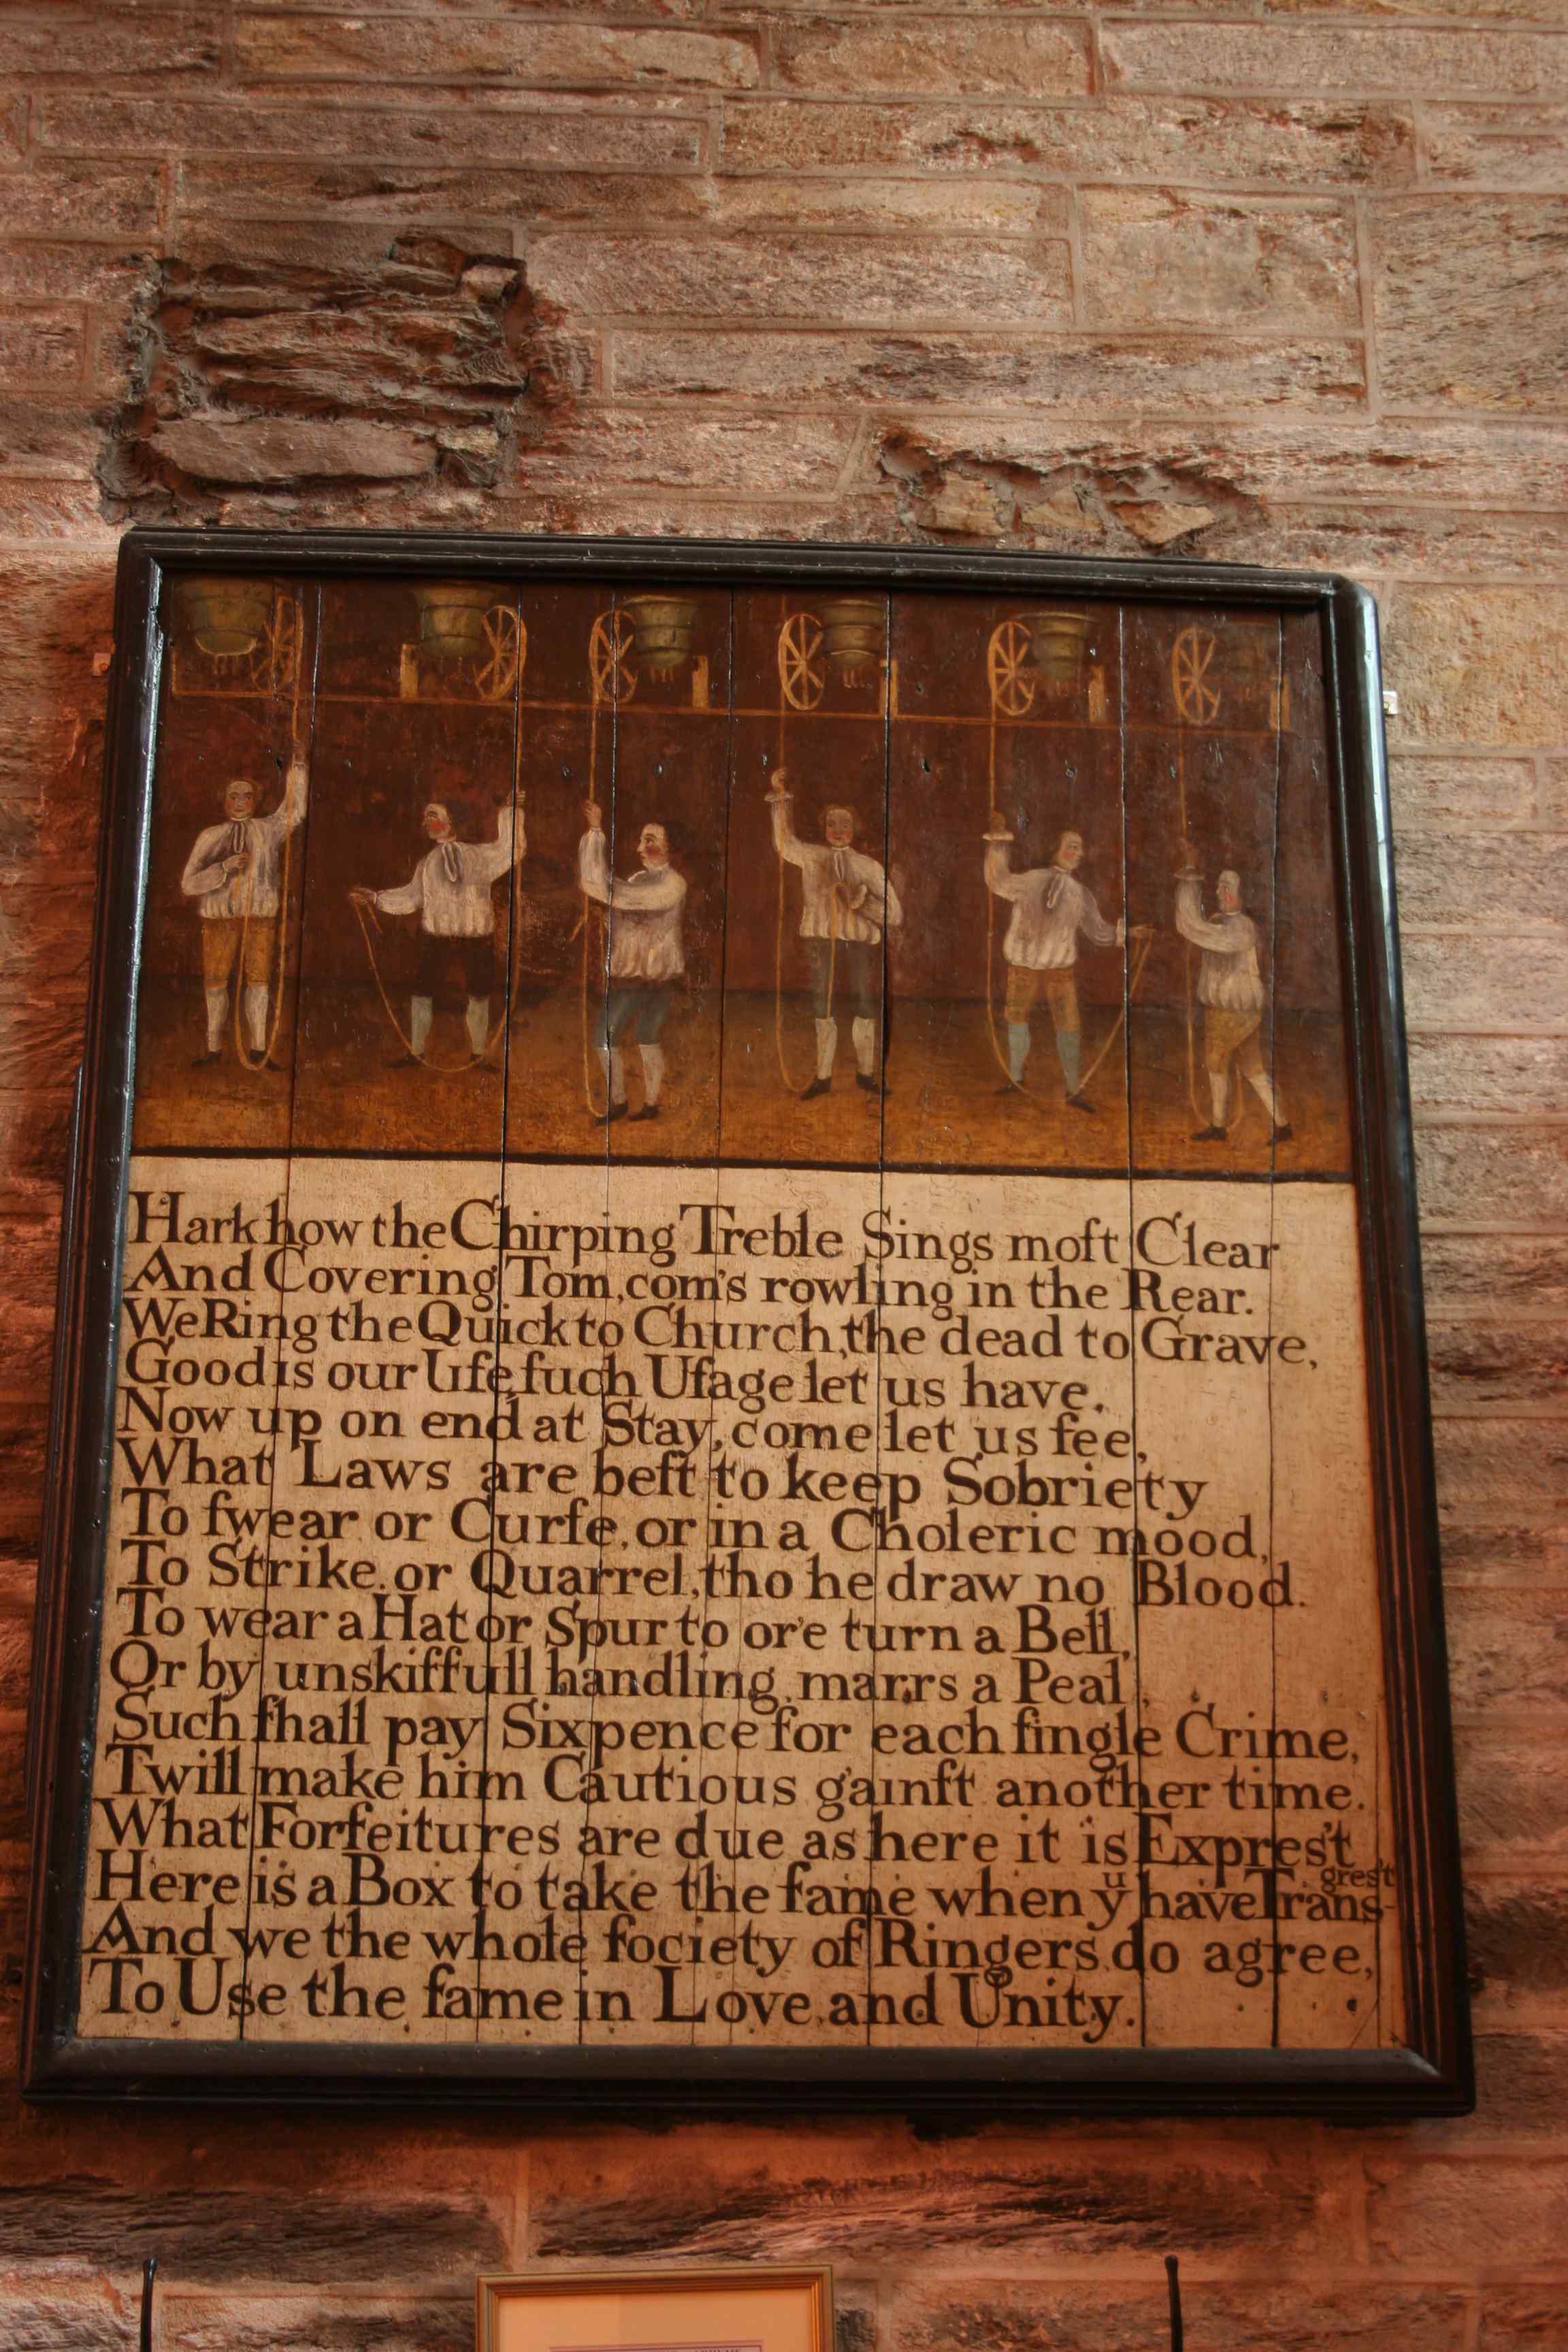 Hark how the Chirping Treble Sings moſt Clear
And Covering Tom, com's rowling in the Rear.
We Ring the Quick to Church, the dead to Grave,
Good is our Uſe, ſuch Uſage let us have.
Now up on end at Stay, come let us ſee,
What Laws are beſt to keep Sobriety
To ſwear or Curſe, or in a Choleric mood,
To Strike, or Quarrel, tho he draw no Blood.
To wear a Hat or Spur to o're turn a Bell,
Or by unskilfull handling, marrs a Peal,
Such ſhall pay Sixpence for each ſingle Crime,
Twill make him Cautious gainſt another time.
What Forfeitures are due as here it is Expres't
Here is a Box to take the ſame when yͧ have Trans-gres't
And we the whole ſociety of Ringers do agree,
To Use the ſame in Love and Unity.